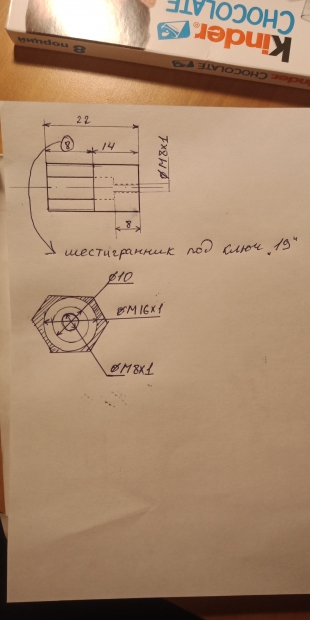 Kinder
CHOCOLATE
8 порций
Kinder
CHOCOLATE
22
8
14
ØM8x1
8
шестигранник под ключ „19"
Ø10
ØM16x1
ØM8x1